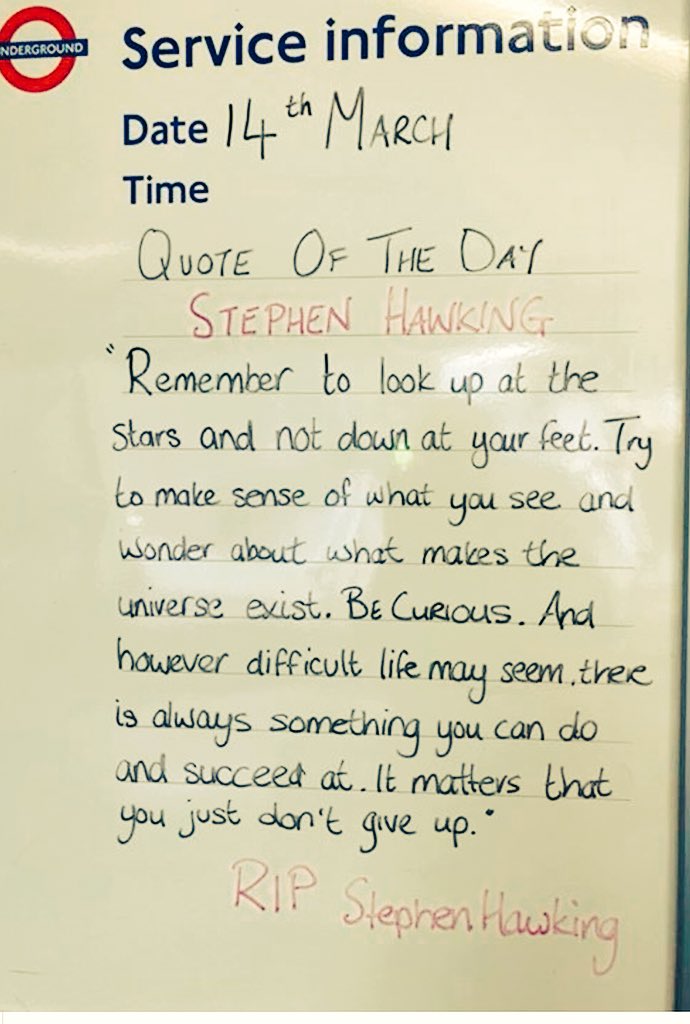 NDERGROUND
Service information
Date 14th MARCH
Time
QUOTE OF THE DAY
STEPHEN HAWKING
"Remember to look up at the
stars and not down at your feet. Try
to make sense of what you see and
wonder about what makes the
universe exist. BE CURIOUS. And
however difficult life may seem, there
is always something you can do
and succeed at. It matters that
you just don't give up."
RIP Stephen Hawking